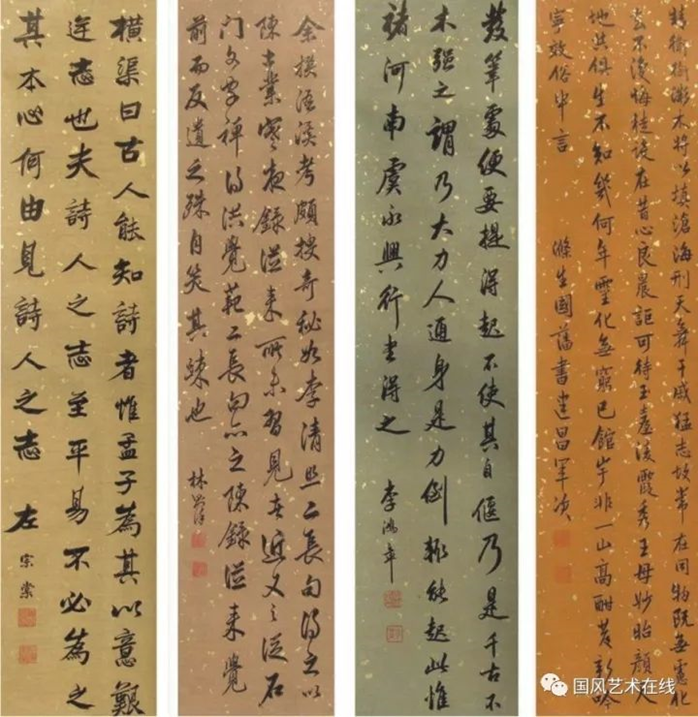 精衛銜微木將以填滄海刑天舞干戚猛志故常在同物既無慮化
去不復悔徒設在昔心良晨詎可待玉臺淩霞秀王母妙怡顏天
地共俱生不知幾何年靈化無窮已館宇非一山高酣發新吟
寧效俗中言 滌生國藩書建昌軍次
發筆處便要提得起不使其自偃乃是千古不
木强之謂乃大力人通身是力倒輒能起此惟
褚河南虞永興行書得之 李鴻章
余撰浯溪考頗搜奇秘如李清照二長句得之以
陳士業寒夜錄從來所未習見者近又之從石
門文字禪得洪覺范二長句亦之陳錄從來覺
前而反遺之殊自笑其疎也 林則徐
橫渠曰古人能知詩者惟孟子為其以意艱
逆志也夫詩人之志至平易不必為之
其本心何由見詩人之志 左宗棠
国风艺术在线